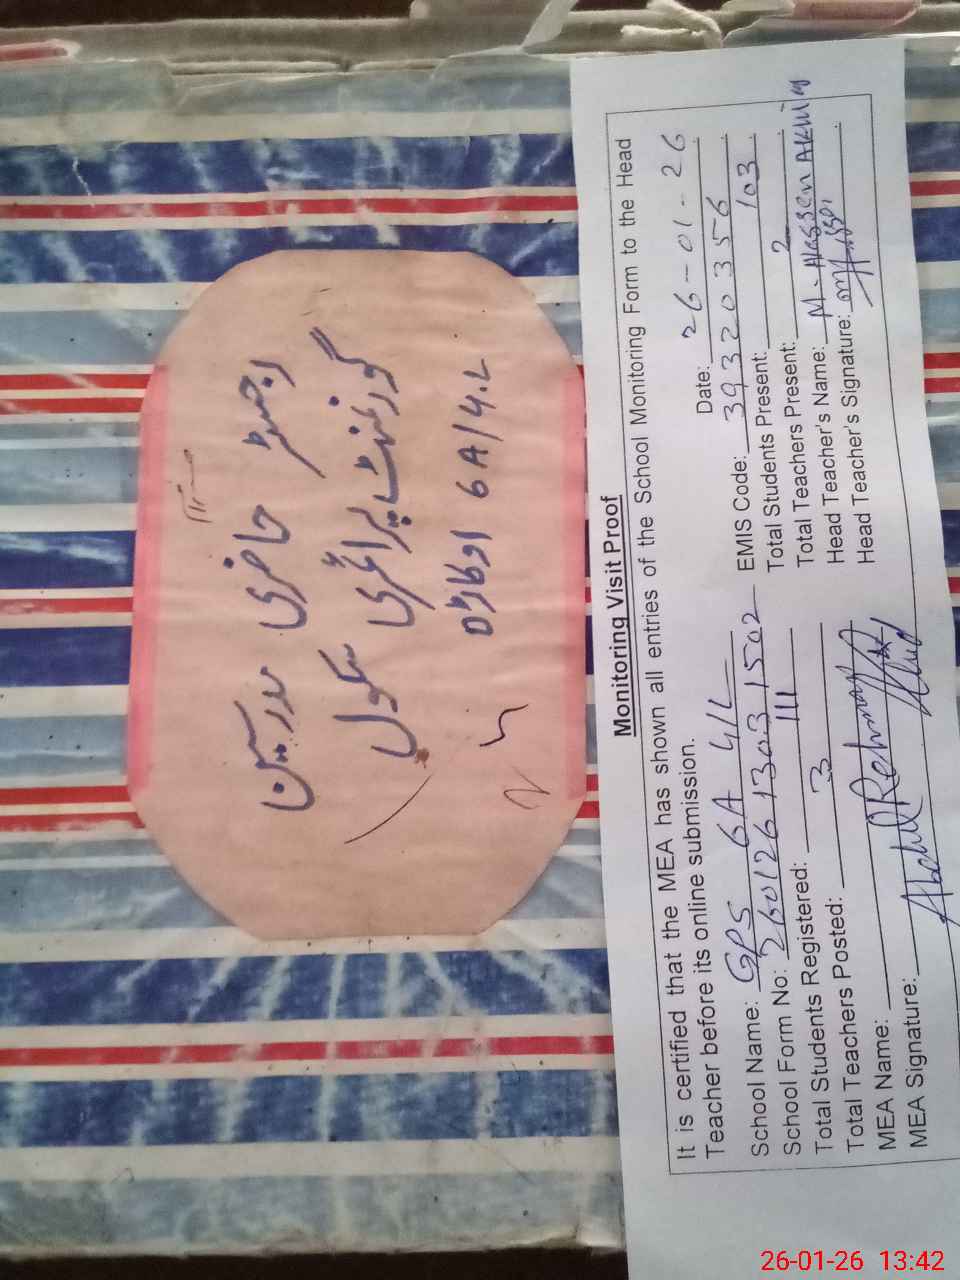 رجسٹر حاضری مدرسین
گورنمنٹ پرائمری سکول
6A/4.L اوکاڑہ
Monitoring Visit Proof
It is certified that the MEA has shown all entries of the School Monitoring Form to the Head
Teacher before its online submission.
Date: 26-01-26
School Name: GPS 6A 4/L EMIS Code: 39320356
School Form No: 26012613031502 Total Students Present: 103
Total Students Registered: 111 Total Teachers Present: 2
Total Teachers Posted: 3 Head Teacher's Name: M.
MEA Name: Abdul Rehman Head Teacher's Signature:
MEA Signature:
26-01-26 13:42